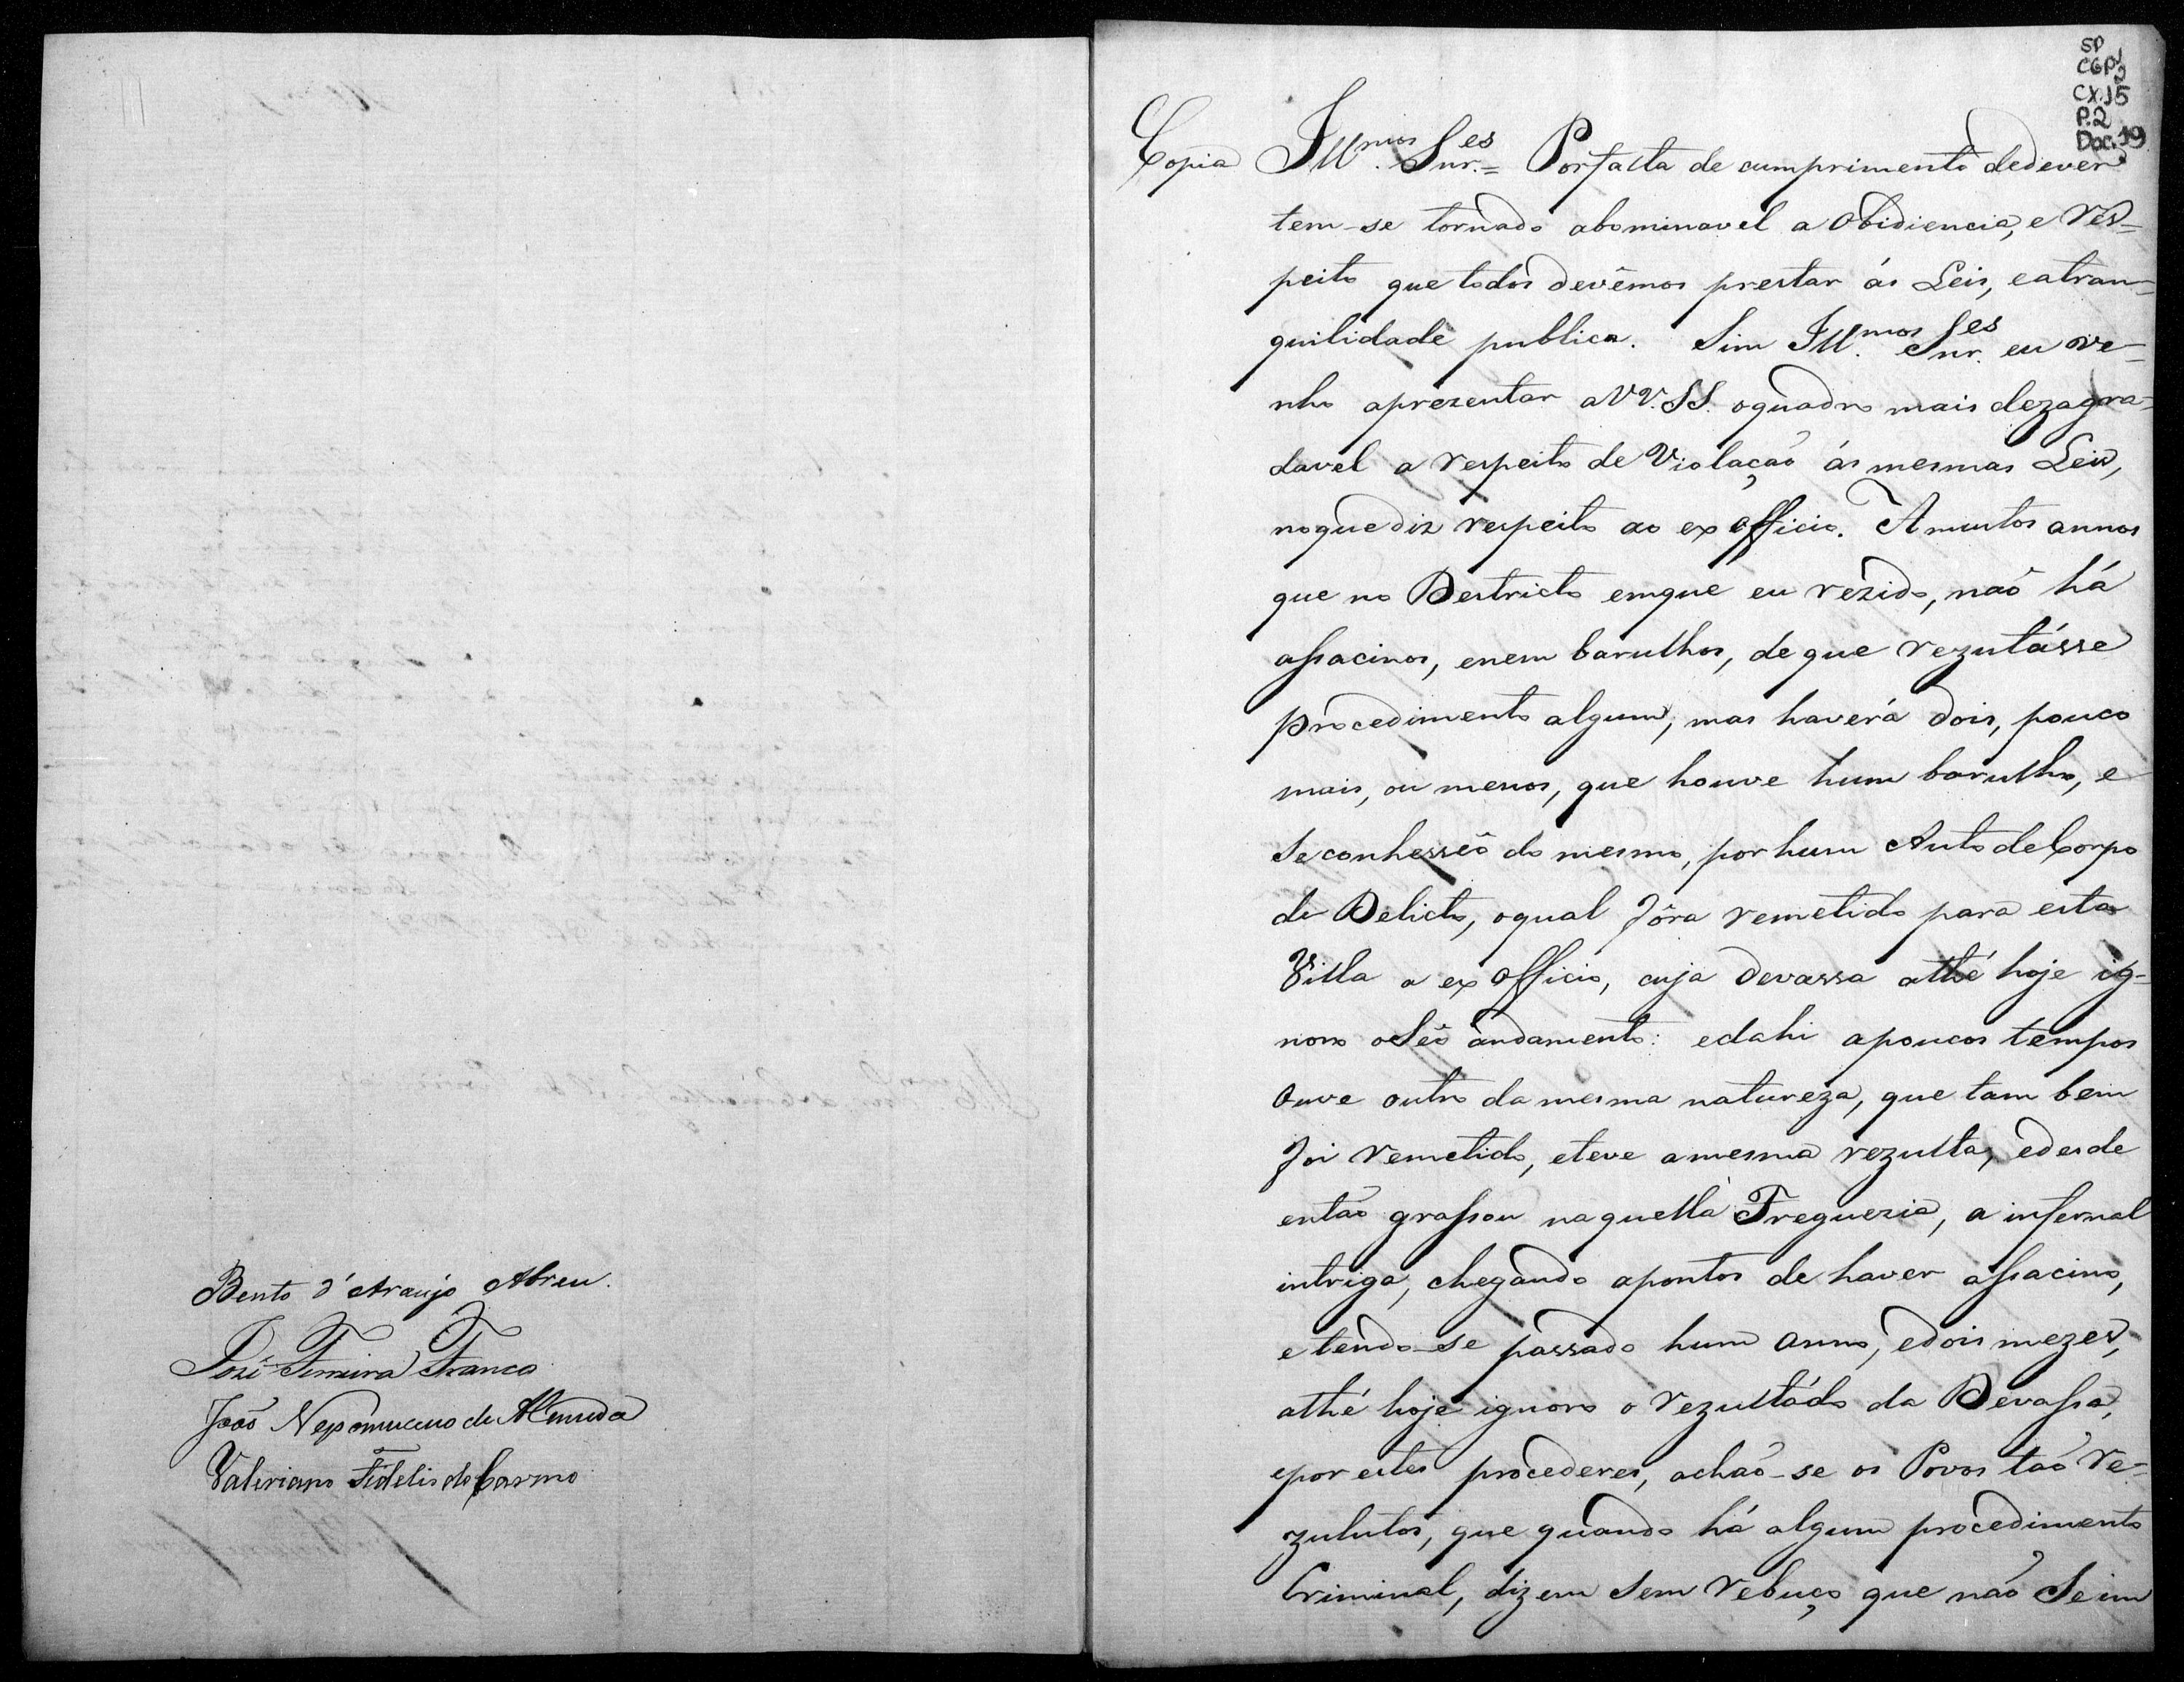 Bento d'Araujo Abreu.
José Ferreira Franco
João Nepomuceno de Almeida
Valeriano Fidelis do Carmo
SP
CGP1
2
CX.15
P.2
Doc.19
Copia Illmos. Snres.= Porfalta de cumprimento dedever
tem-se tornado abominavel a Obidiencia, e res=
peito que todos devêmos prestar ás Leis, eatran=
quilidade publica. Sim Illmos. Snres. eu ve=
nho aprezentar aVV.SS. oquadro mais dezagra=
davel a respeito de Violação ás mesmas Leis,
noquediz respeito ao ex officio. A muitos annos
que no Destricto emque eu rezido, naõ há
assacinos, enem barulhos, de que rezutásse
procedimento algum; mas haverá dois, pouco
mais, ou menos, que houve hum barulho, e
Se conhessêo do mesmo, por hum Auto deCorpo
de Delicto, oqual fôra remetido para esta
Villa a ex Officio, cuja devassa athé hoje ig=
noro oSêo andamento: edahi apoucos tempos
Ouve outro da mesma natureza, que tam bem
foi remetido, eteve amesma rezulta, edesde
então grassou naquella Freguezia, a infernal
intriga, chegando apontos de haver assacino,
e tendo-se passado hum anno, edois mezes,
athé hoje ignoro o rezultádo da Devassa,
epor estes procederes, achaõ-se os Povos taõ re=
zulutos, que quando há algum procedimento
Criminal, dizem Sem rebuço que naõ Se im